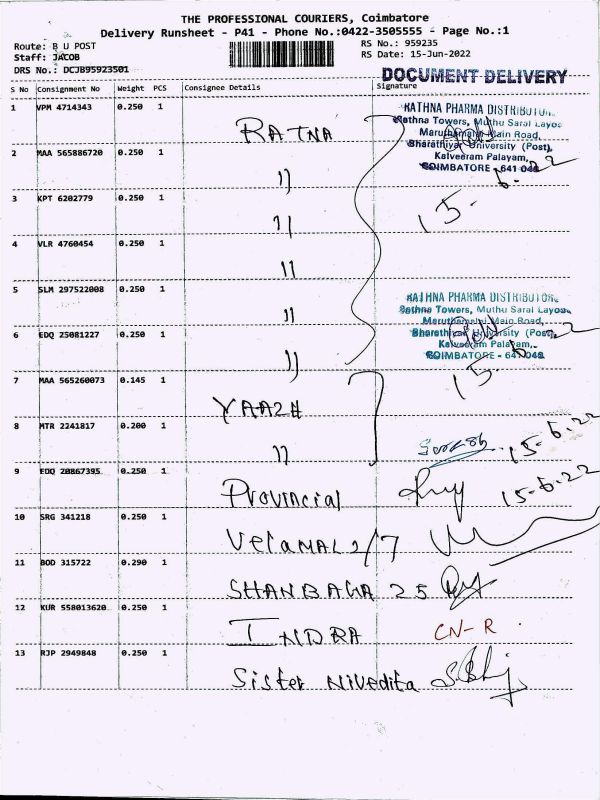 THE PROFESSIONAL COURIERS, Coimbatore
Delivery Runsheet - P41 - Phone No.:0422-3505555 - Page No.:1
Route: B U POST
Staff: JACOB
DRS No.: DCJB95923501
RS No.: 959235
RS Date: 15-Jun-2022
DOCUMENT DELIVERY
S No Consignment No Weight PCS Consignee Details Signature
1 VPM 4714343 0.250 1 RATNA
RATHNA PHARMA DISTRIBUTOR
Rathna Towers, Muthu Saral Layou
Maruthamalai Main Road,
Bharathiyar University (Post),
Kalveeram Palayam,
COIMBATORE - 641 046
15-6-22
2 MAA 565886720 0.250 1 "
3 KPT 6202779 0.250 1 "
4 VLR 4760454 0.250 1 "
5 SLM 297522008 0.250 1 "
RATHNA PHARMA DISTRIBUTOR
Rathna Towers, Muthu Saral Layou
Maruthamalai Main Road,
Bharathiyar University (Post),
Kalveeram Palayam,
COIMBATORE - 641 046
15-6-22
6 EDQ 25081227 0.250 1 "
7 MAA 565260073 0.145 1 YAAZH
8 MTR 2241817 0.200 1 " 15-6-22
9 EDQ 20867395 0.250 1 Provincial 15-6-22
10 SRG 341218 0.250 1 Velamal 2/7
11 BOD 315722 0.290 1 SHANBAGA 25
12 KUR 558013620 0.250 1 INDRA CN-R
13 RJP 2949848 0.250 1 Sister Nivedita